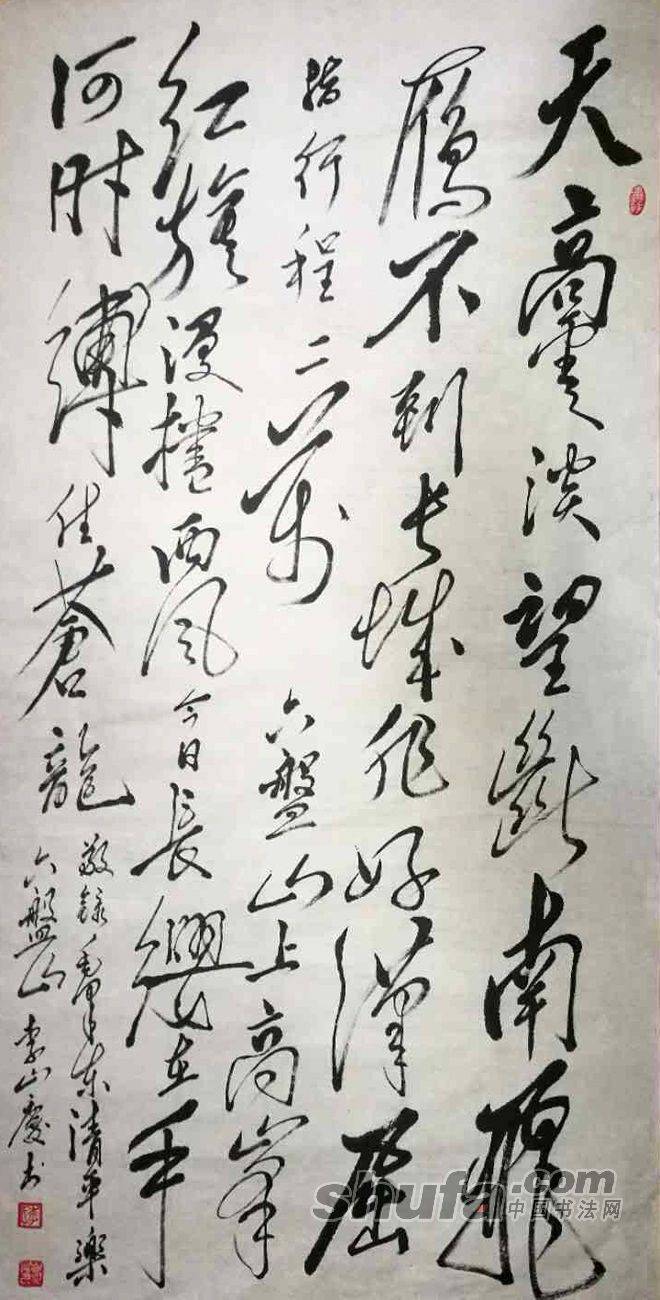 天高雲淡望斷南飛
鴈不到長城非好漢屈
指行程二萬六盤山上高峯
紅旗漫捲西風今日長纓在手
何時縛住蒼龍
敬錄毛澤东清平樂
六盤山李山慶书
shufa.com
中国书法网